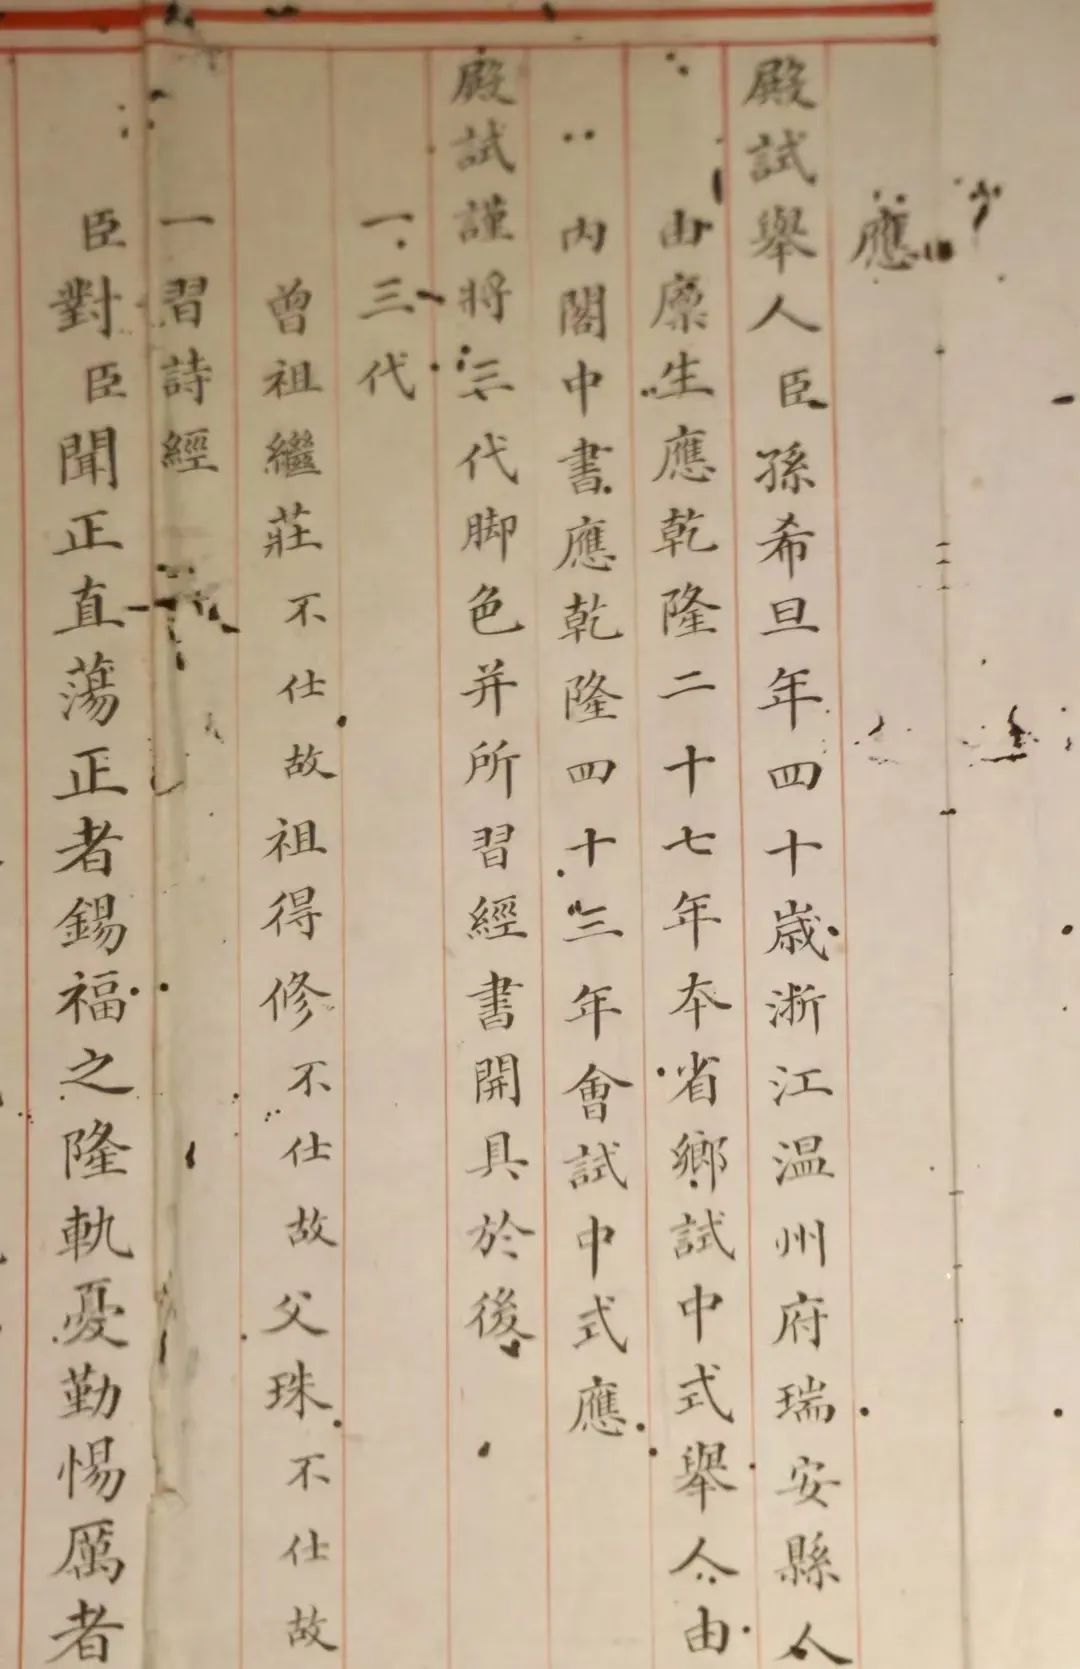 應
殿試舉人臣孫希旦年四十歲浙江温州府瑞安縣人
由廩生應乾隆二十七年本省鄉試中式舉人由
內閣中書應乾隆四十三年會試中式應
殿試謹將三代脚色并所習經書開具於後
一三代
曾祖繼莊不仕故祖得修不仕故父珠不仕故
一習詩經
臣對臣聞正直蕩正者錫福之隆軌憂勤惕厲者